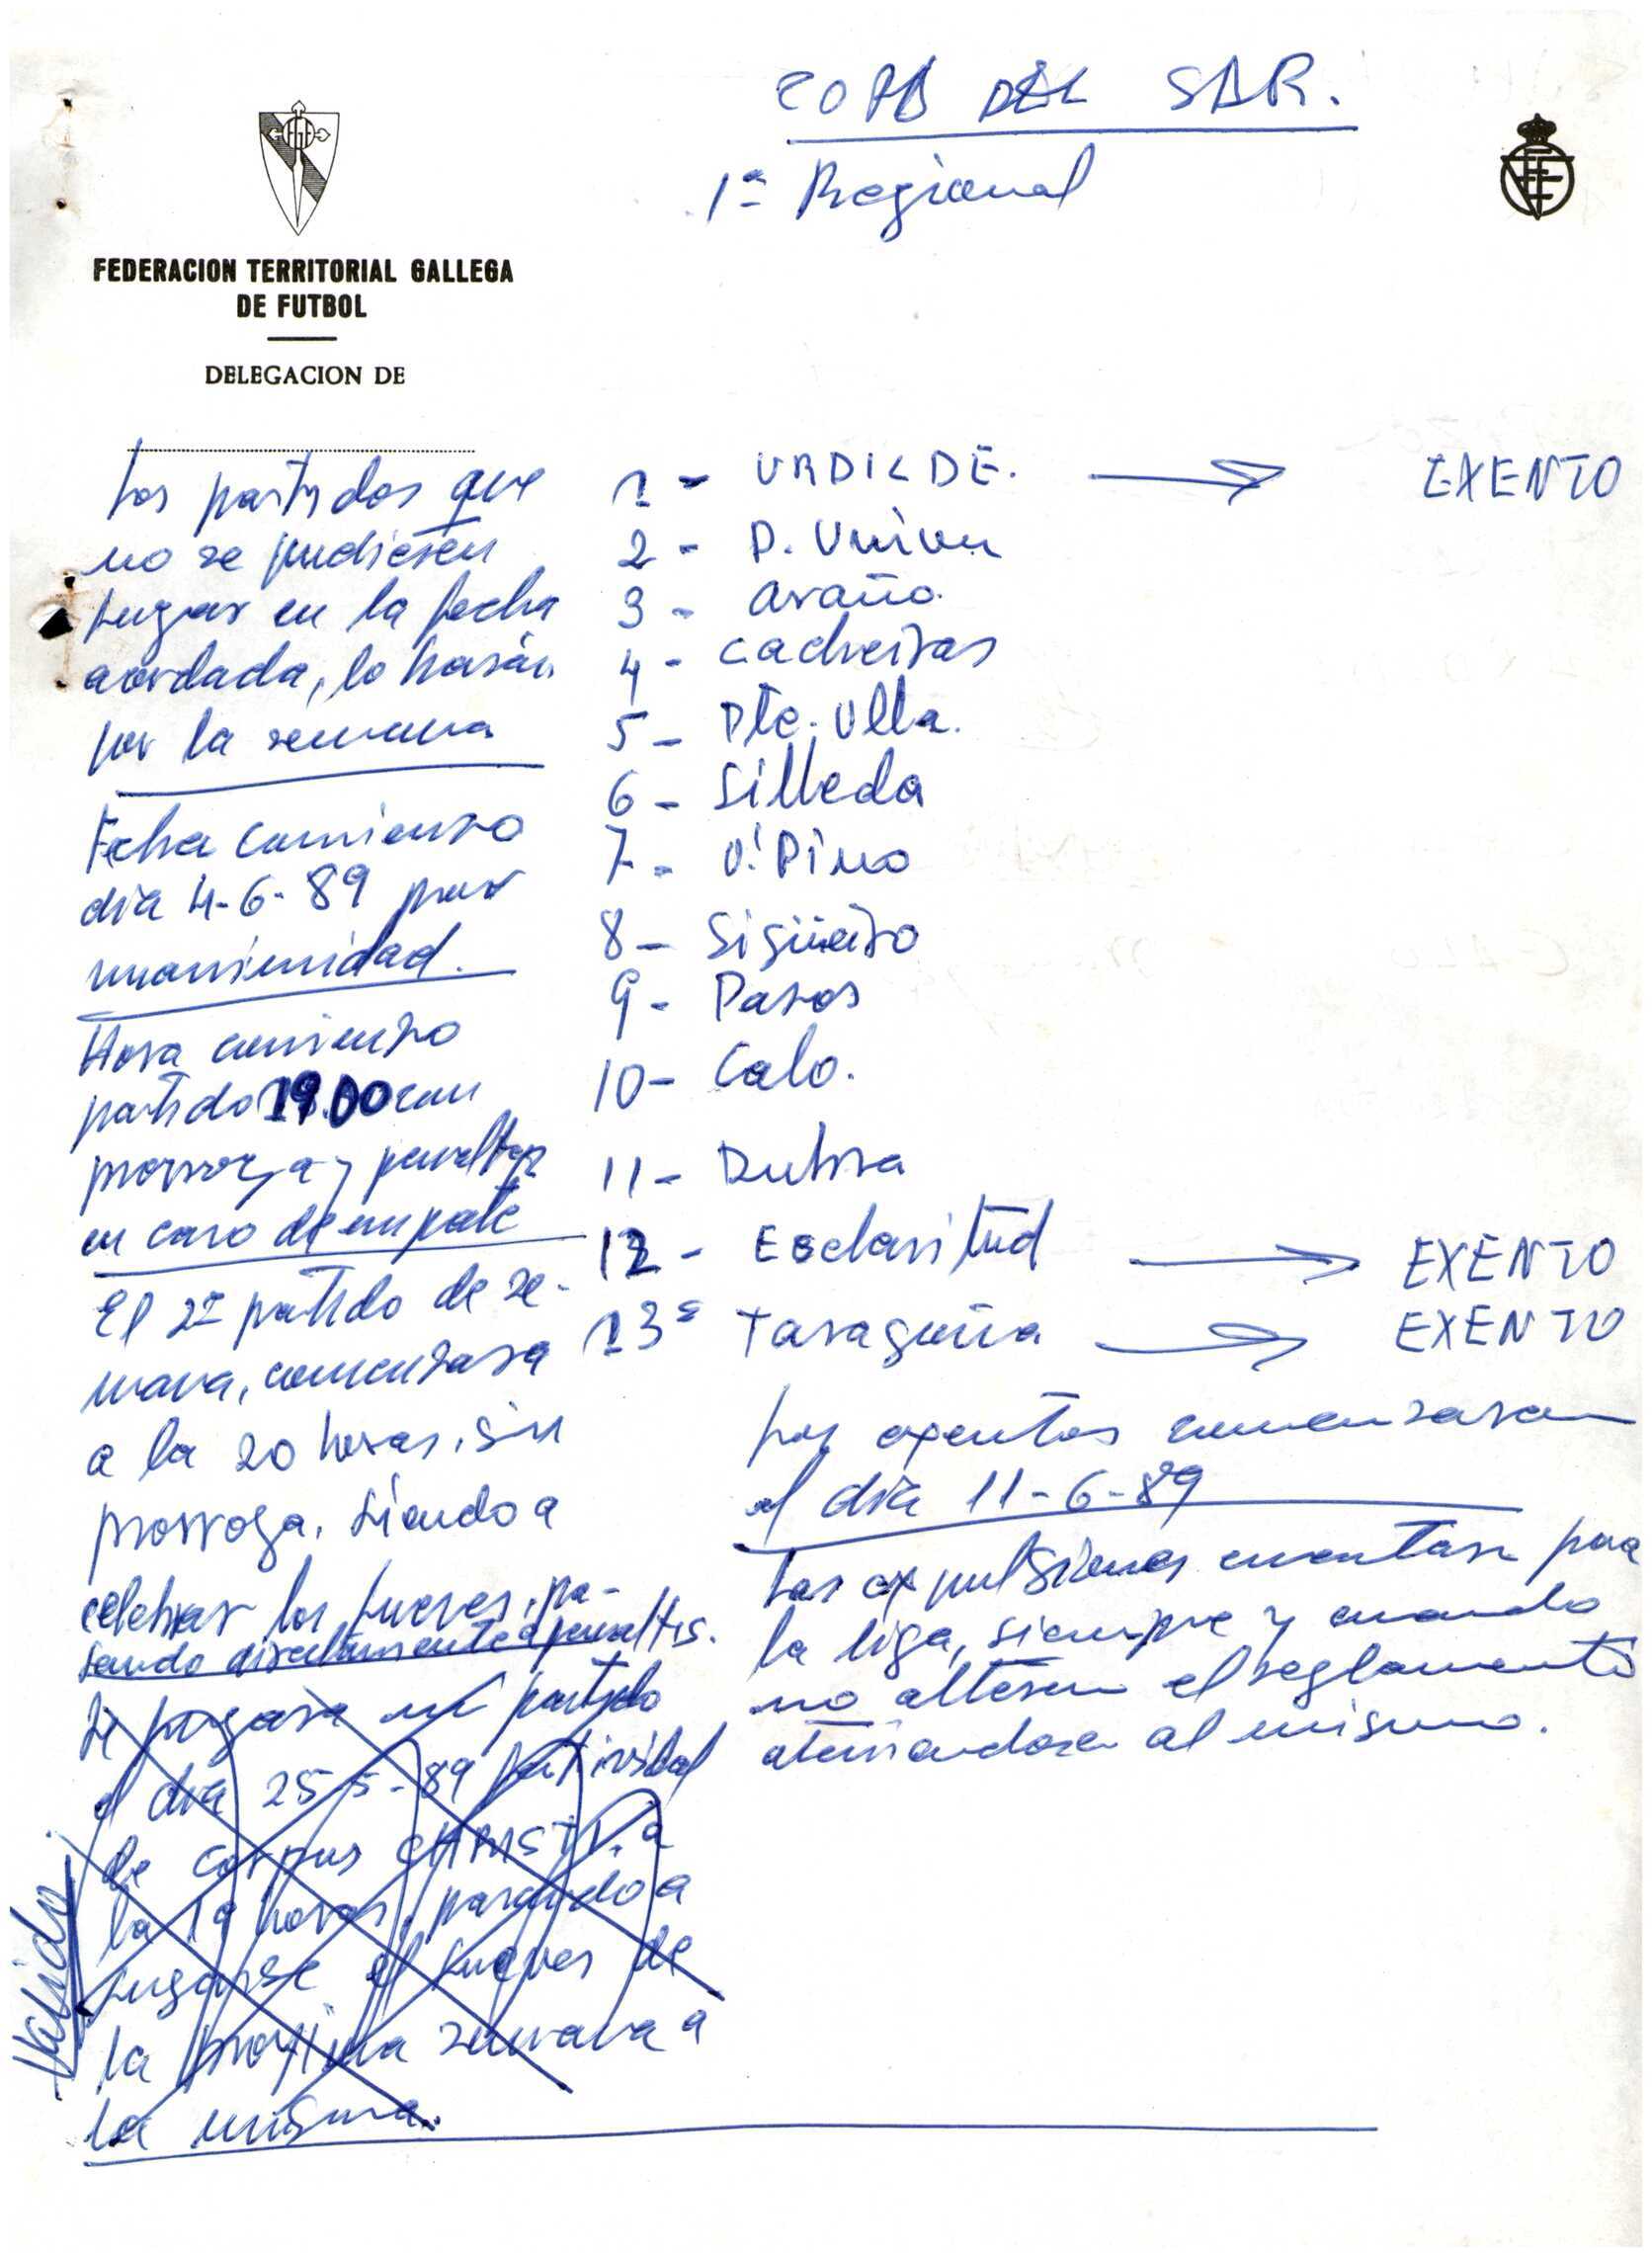 COPA DEL SAR.
1ª Regional
FEDERACION TERRITORIAL GALLEGA
DE FUTBOL
DELEGACION DE
Los partidos que
no se pudiesen
jugar en la fecha
acordada, lo harán
por la semana
Fecha comienzo
dia 4-6-89 por
unanimidad.
Hora comienzo
partido 19.00 con
prorroga y penaltys
en caso de empate
El 2º partido de se-
mana, comenzara
a la 20 horas, sin
prorroga, siendo a
celebrar los jueves, pa-
sando directamente a penaltis.
Se jugara un partido
el dia 25-5-89 festividad
de corpus CHRISTI, a
la 19 horas, pasando a
jugarse el jueves de
la proxima semana a
la misma.
Valido
1 - URDILDE. → EXENTO
2 - P. Union
3 - Araño.
4 - Cacheiras
5 - Pte. Ulla.
6 - Silleda
7 - O. Pino
8 - Sigüeiro
9 - Pasos
10 - Calo.
11 - Dubra
12 - Esclavitud → EXENTO
13ª Taragoña → EXENTO
Los exentos comenzaran
el dia 11-6-89
Las expulsiones cuentan para
la liga, siempre y cuando
no alteren el reglamento
ateniendose al mismo.